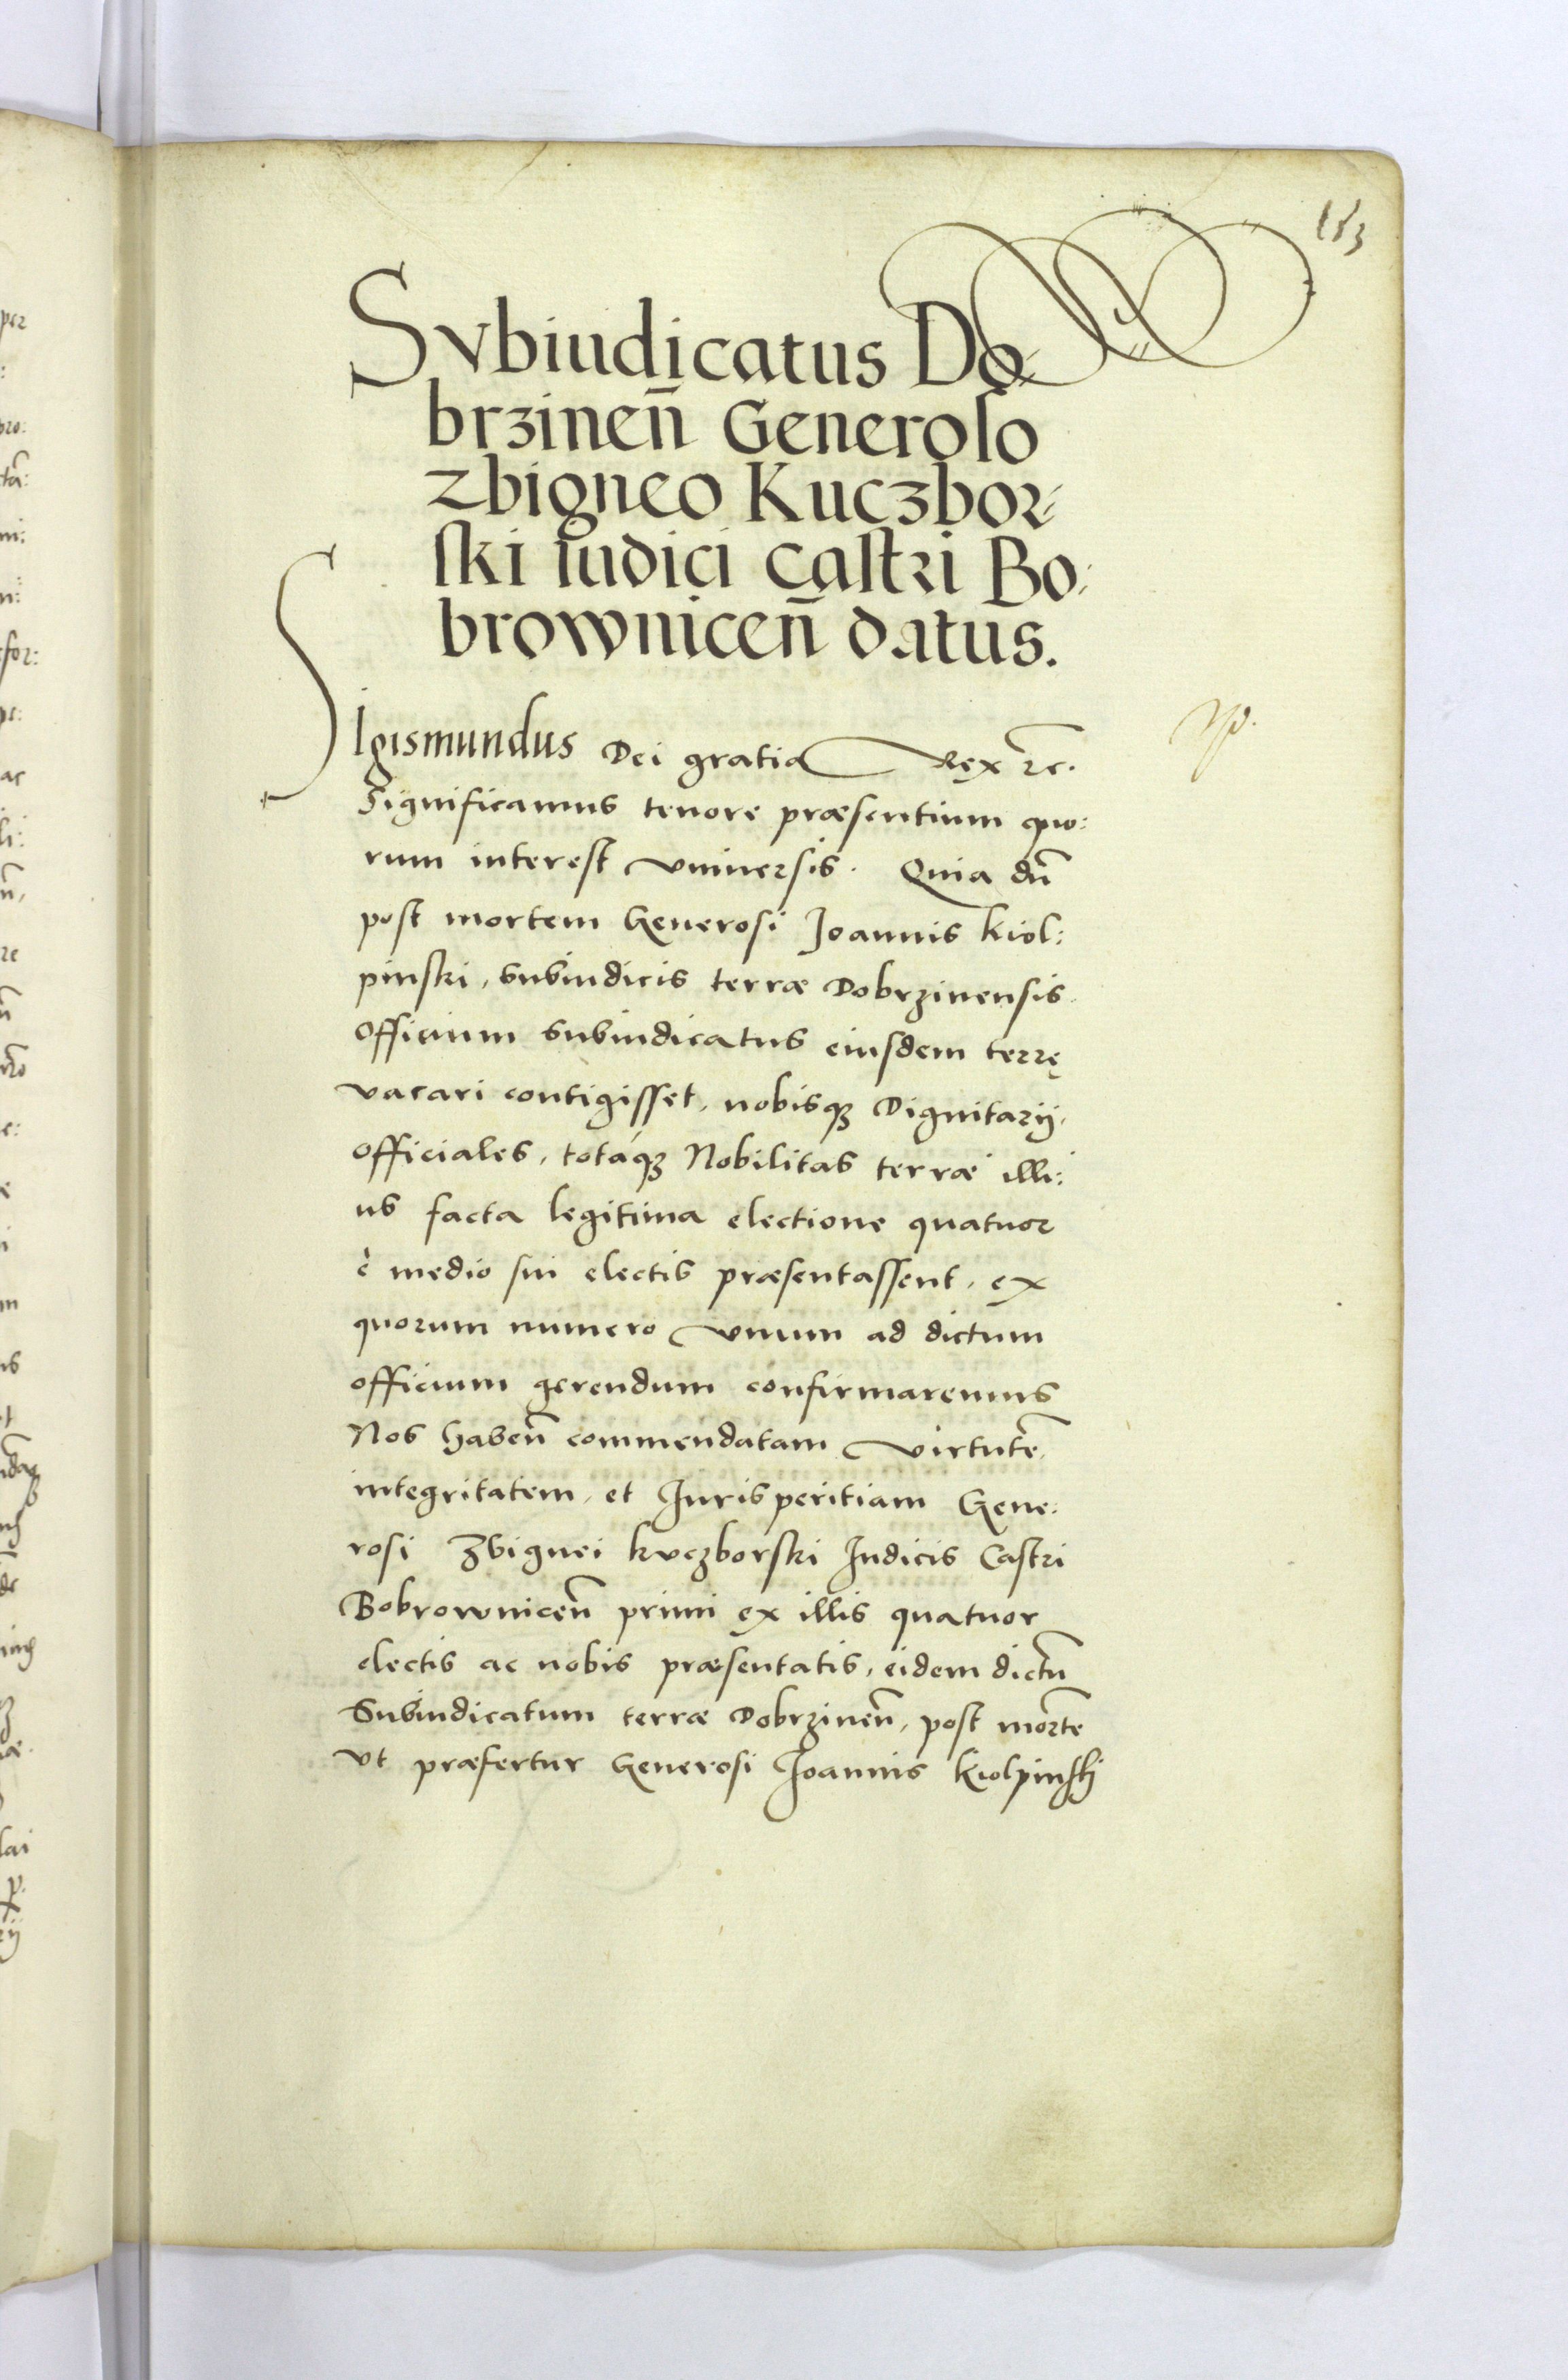 Svbiudicatus Do-
brzineñ Generoso
Zbigneo Kuczbor-
ski Iudici Castri Bo:
browniceñ datus.
Sigismundus Dei gratia Rex etc.
Significamus tenore præsentium quo:
rum interest vniuersis. Quia dũ
post mortem Generosi Joannis Kiol:
pinski, Subiudicis terræ Dobrzinensis.
Officium Subiudicatus eiusdem terrę
vacari contigisset, nobisq3 Dignitarij.
Officiales, totáq3 Nobilitas terræ illi:
us facta legitima electione quatuor
è medio sui electis præsentassent, ex
quorum numero vnum ad dictum
officium gerendum confirmaremus
Nos habeñ commendatam virtutẽ,
integritatem, et Jurisperitiam Gene:
rosi Zbignei Kuczborski Judicis Castri
Bobrowniceñ primi ex illis quatuor
electis ac nobis præsentatis, eidem dictũ
Subiudicatum terræ Dobrzineñ, post mortẽ
vt præfertur Generosi Joannis Kiolpinski